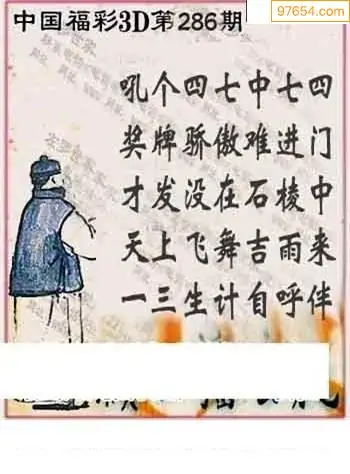 97654.com
中国福彩3D第286期
吼个四七中七四
奖牌骄傲难进门
才发没在石棱中
天上飞舞吉雨来
一三生计自呼伴